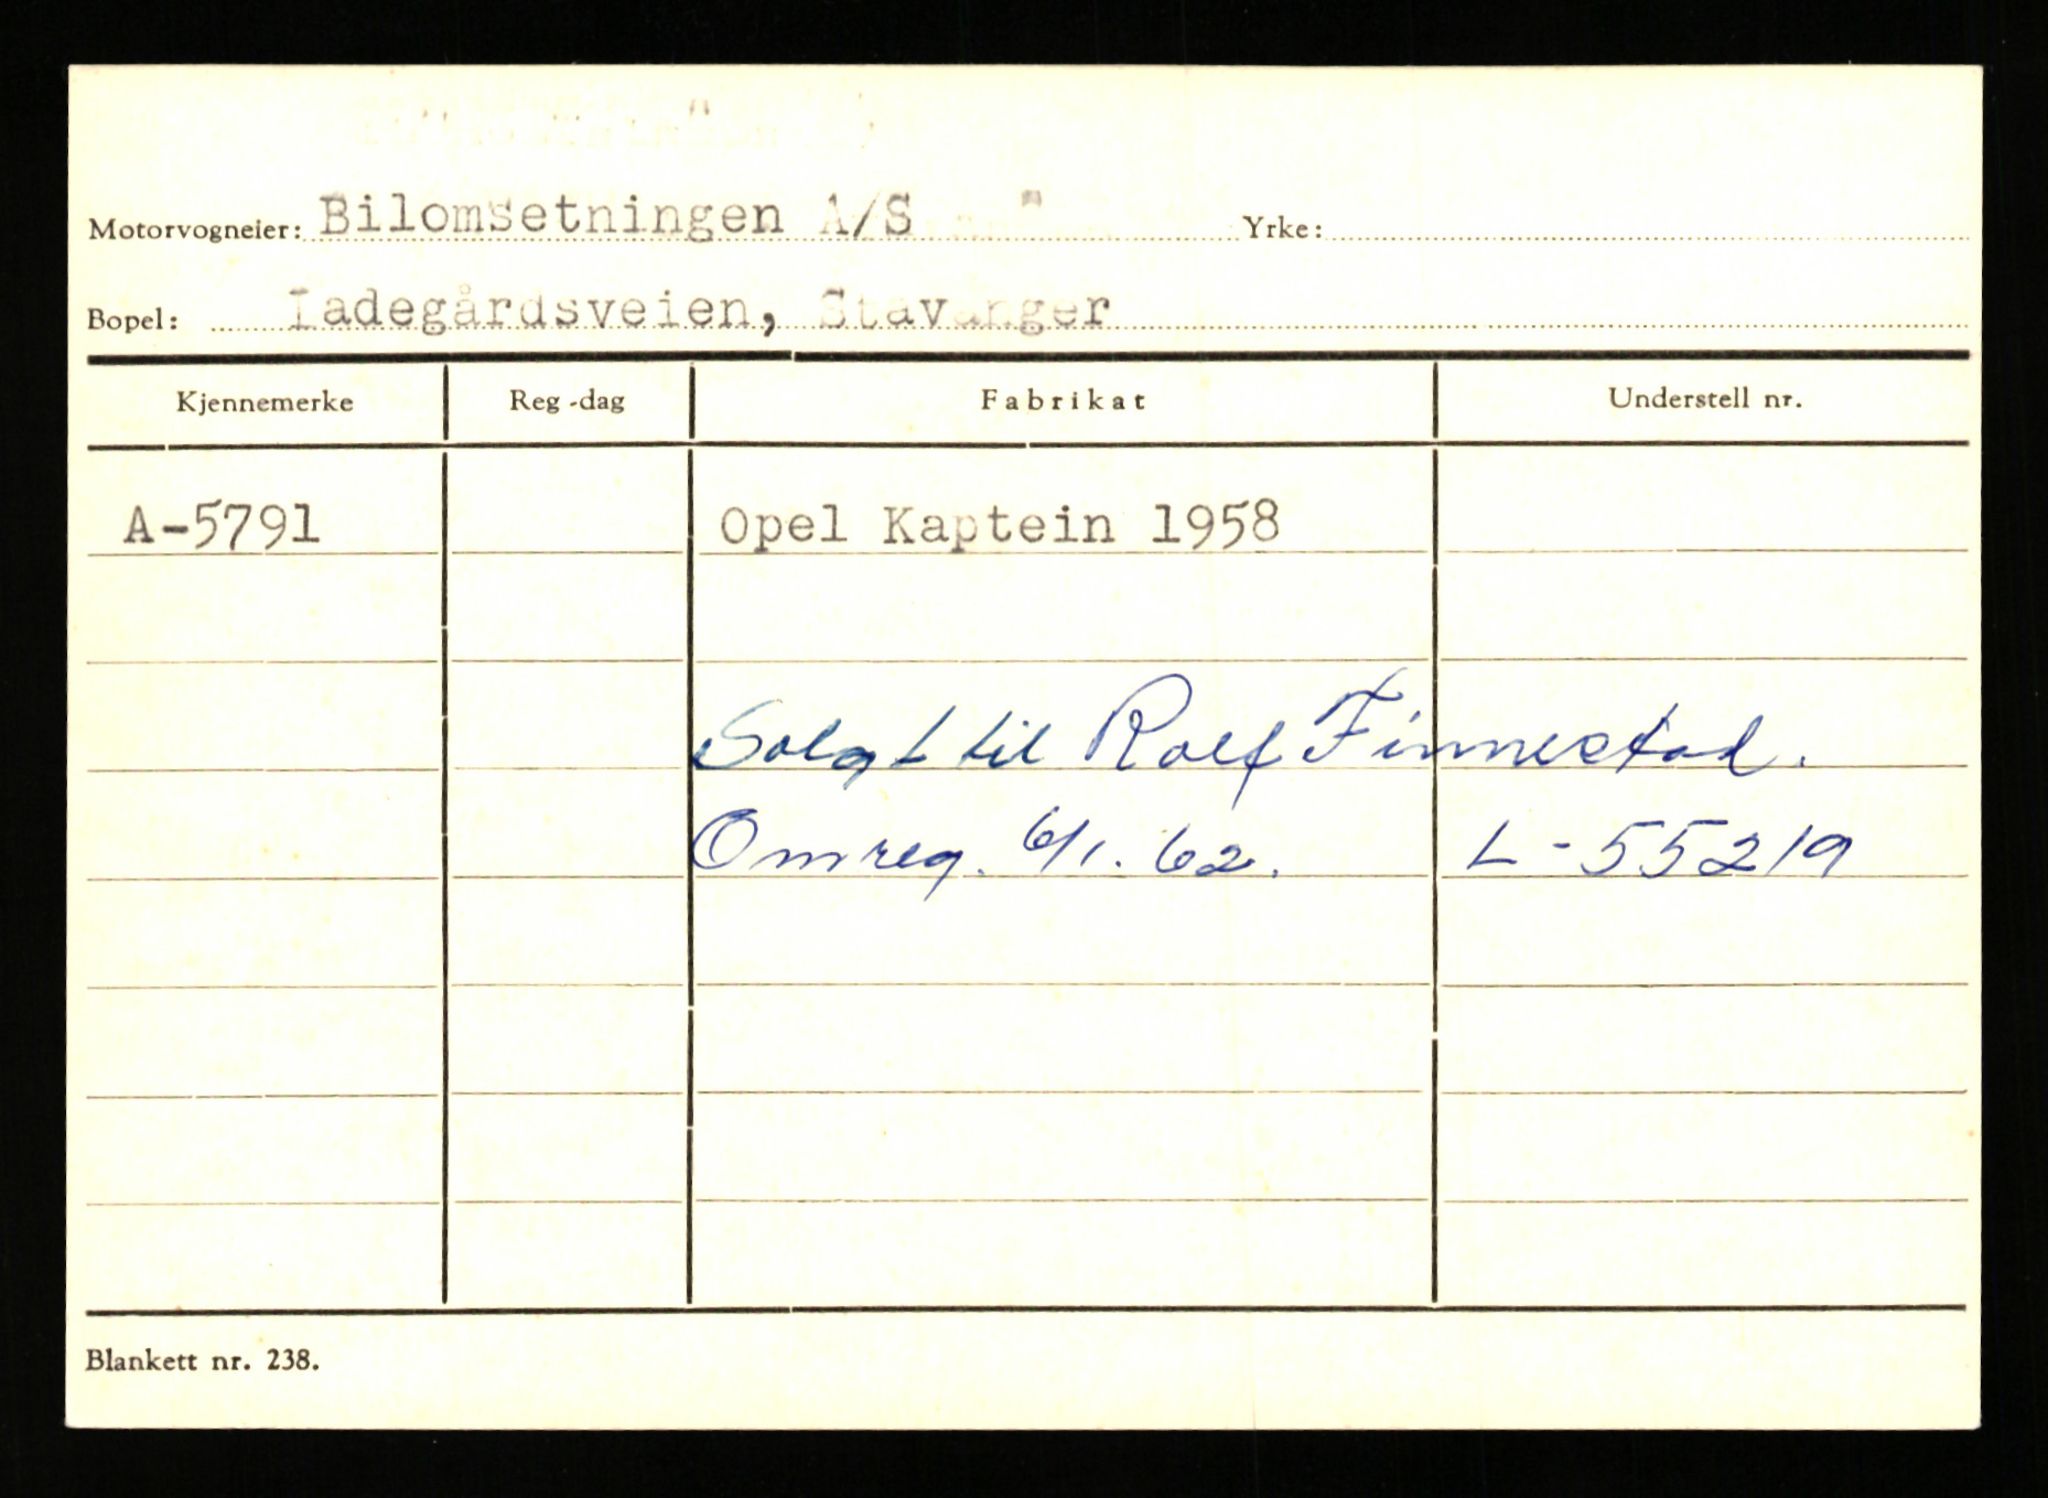 Motorvogneier: Bilomsetningen A/S Yrke:
Bopel: Ladegårdsveien, Stavanger
Kjennemerke Reg-dag Fabrikat Understell nr.
A-5791 Opel Kaptein 1958
Solgt til Rolf Finnestad.
Omreg. 6/1. 62. L-55219
Blankett nr. 238.